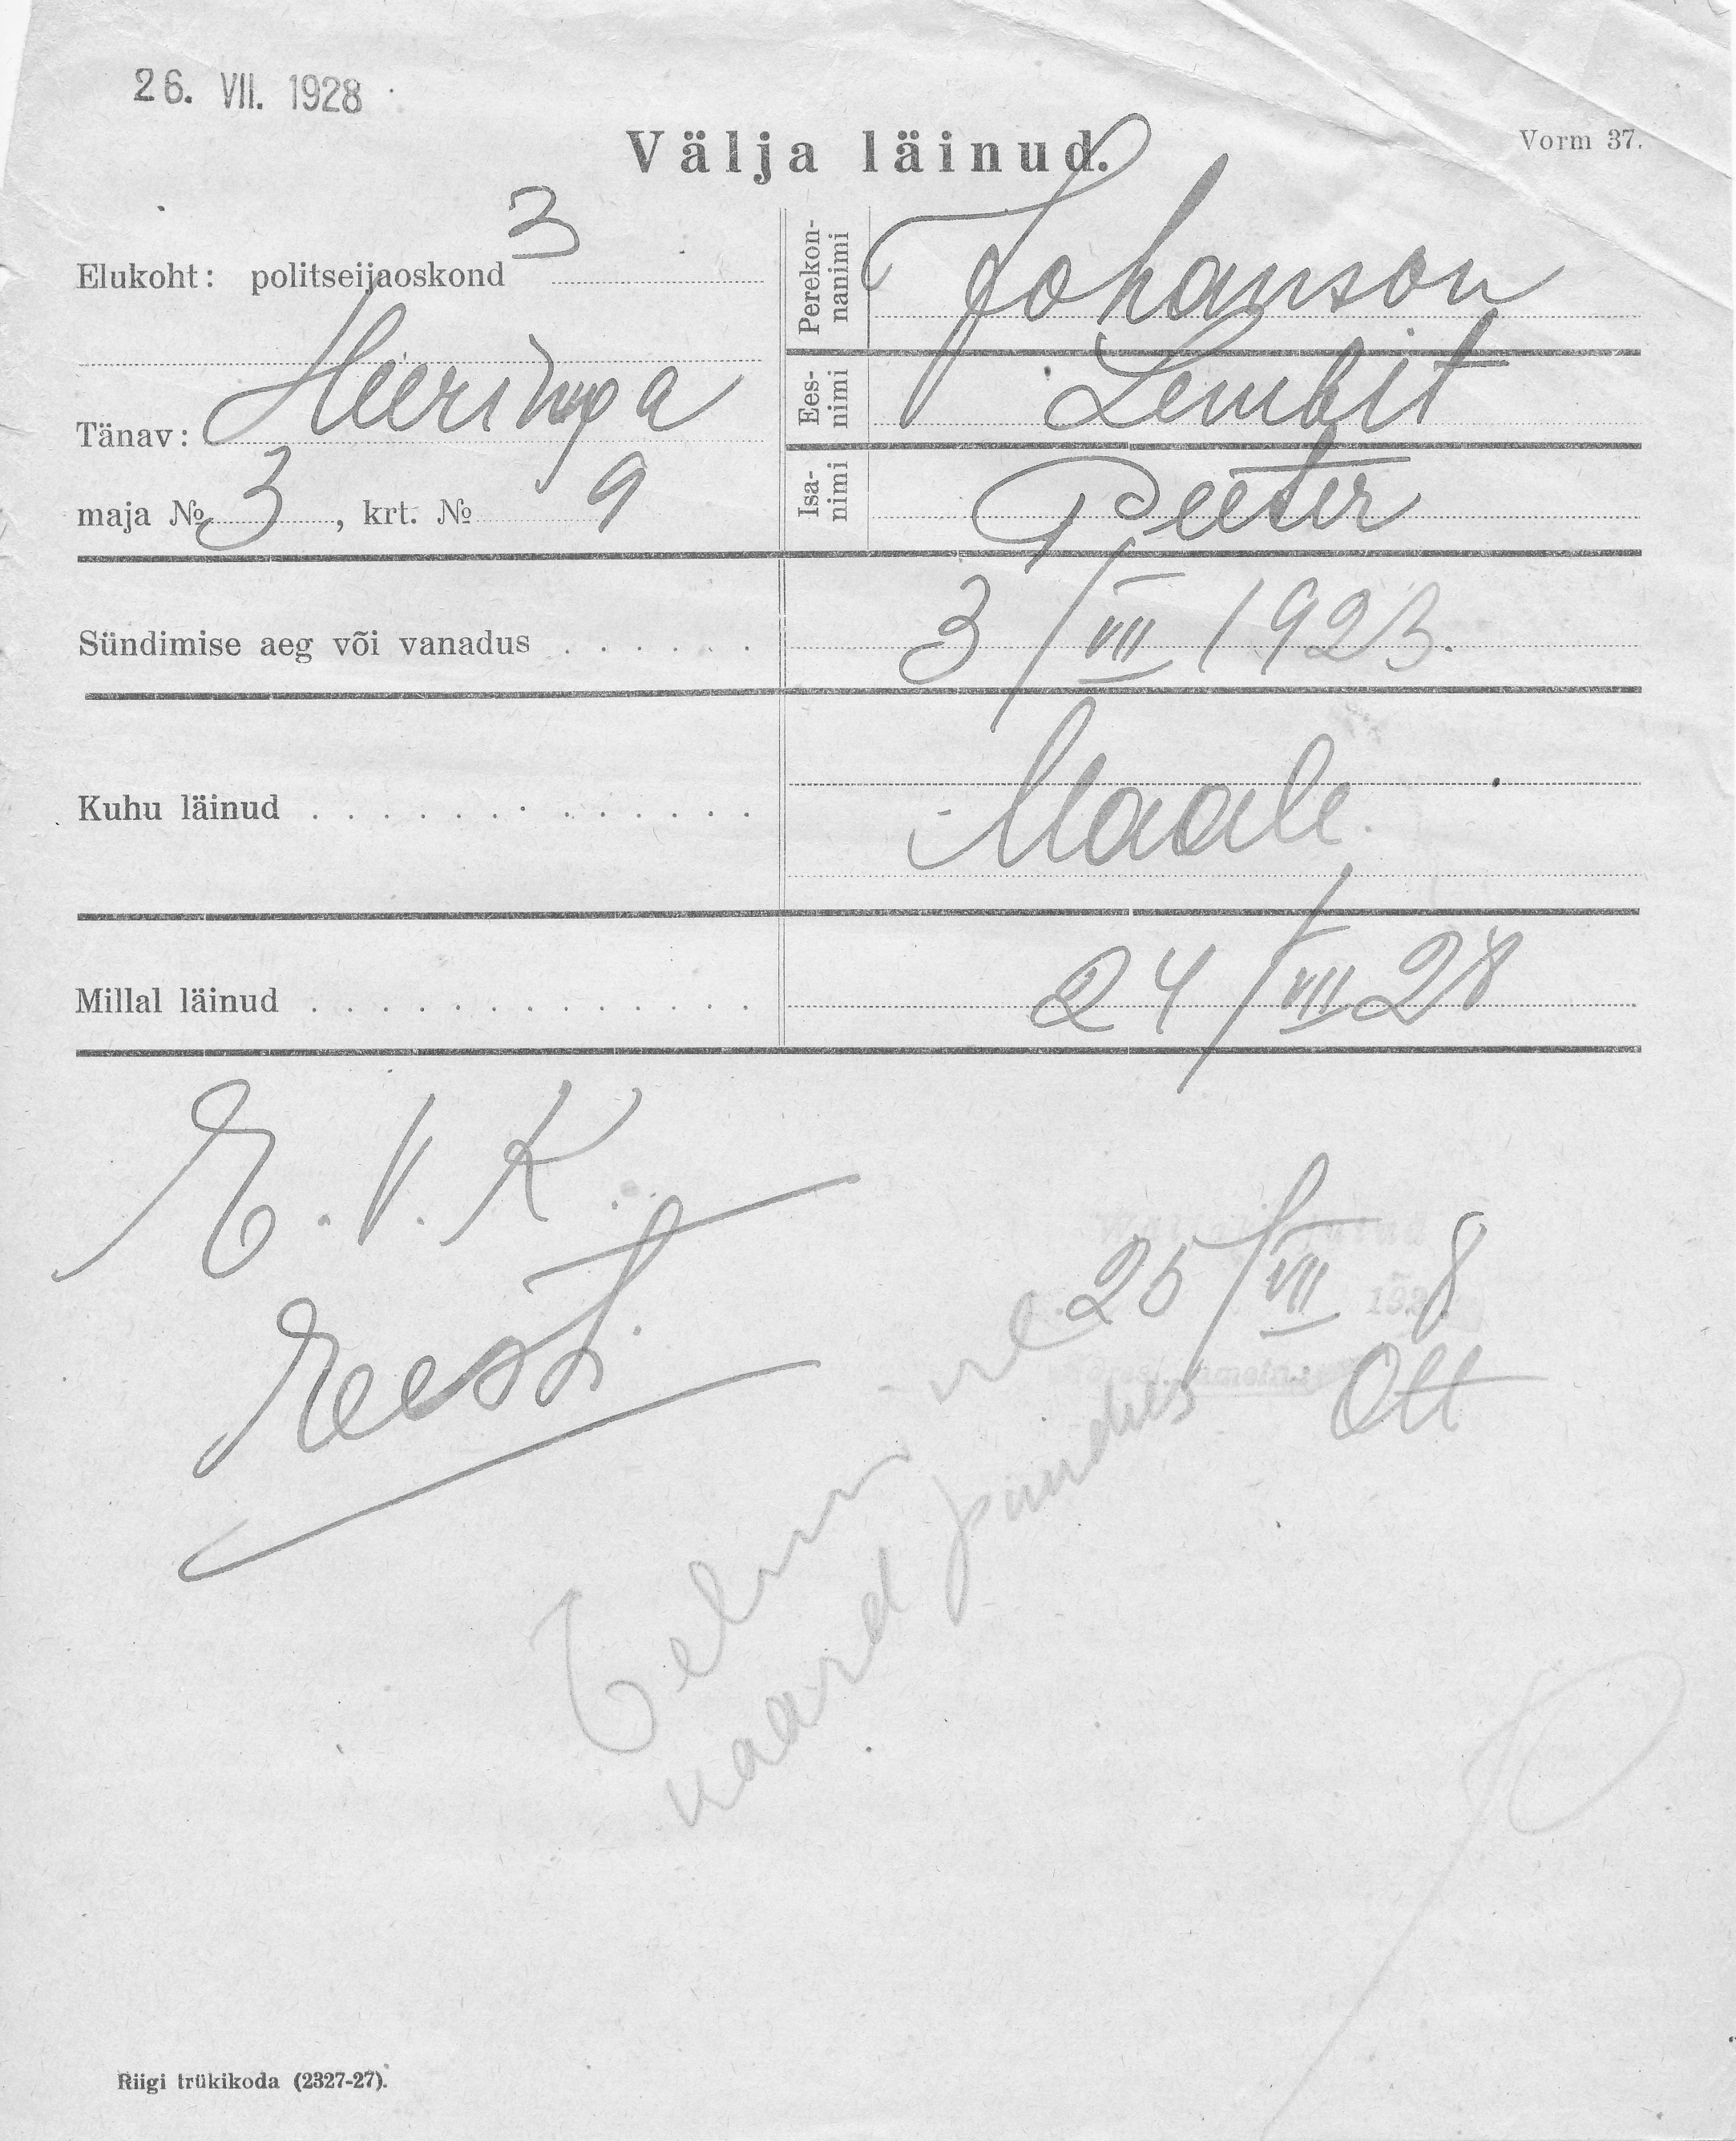 26. VII. 1928
Välja läinud.
Vorm 37.
Elukoht: politseijaoskond 3
Tänav: Heeringa
maja № 3, krt. № 9
Perekonnanimi Johanson
Eesnimi Lembit
Isanimi Peeter
Sündimise aeg või vanadus . . . . . . 3/VII 1923.
Kuhu läinud . . . . . . . . . . . . . Maale.
Millal läinud . . . . . . . . . . . . . 24/VII 28
E. V. K.
Eesti.
25/VII 8
Ott
kaard puudus
Riigi trükikoda (2327-27).